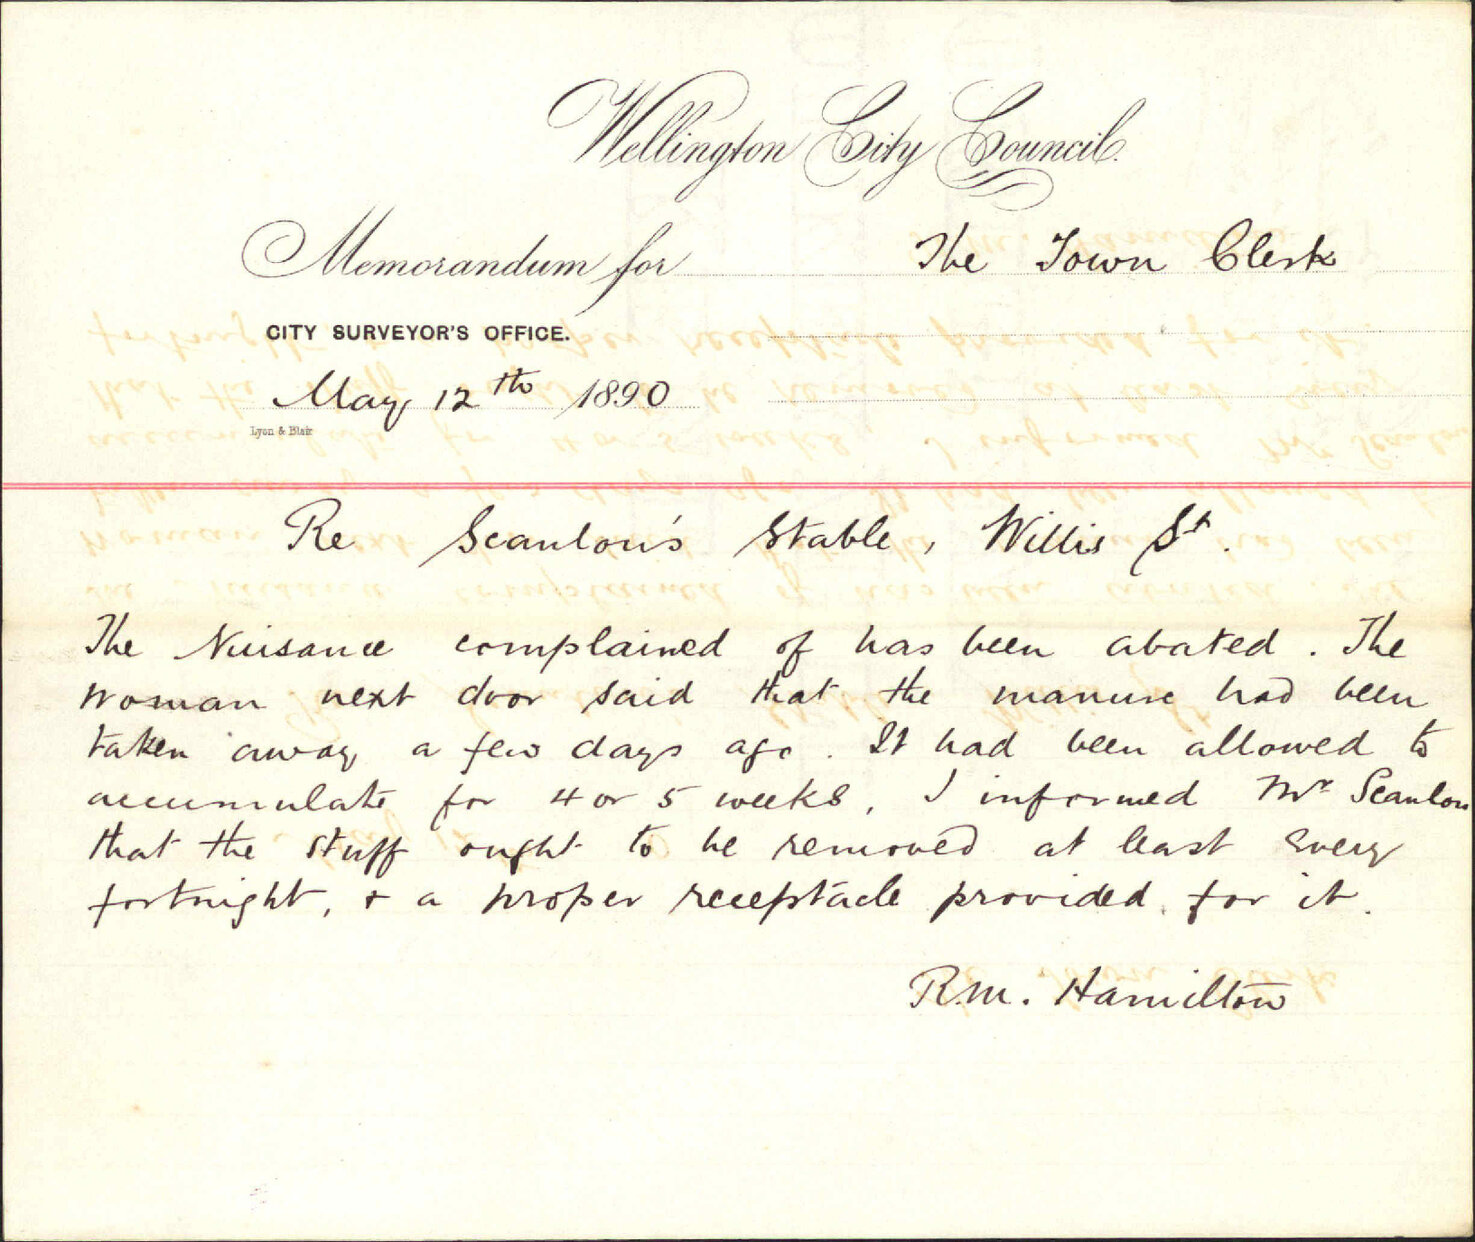 Wellington City Council.
Memorandum for The Town Clerk
CITY SURVEYOR'S OFFICE.
May 12th 1890
Lyon & Blair
Re Scanlon's Stable, Willis St.
The Nuisance complained of has been abated. The
woman next door said that the manure had been
taken away a few days ago. It had been allowed to
accumulate for 4 or 5 weeks, I informed Mr Scanlon
that the stuff ought to be removed at least every
fortnight, & a proper receptacle provided for it.
R.M. Hamilton